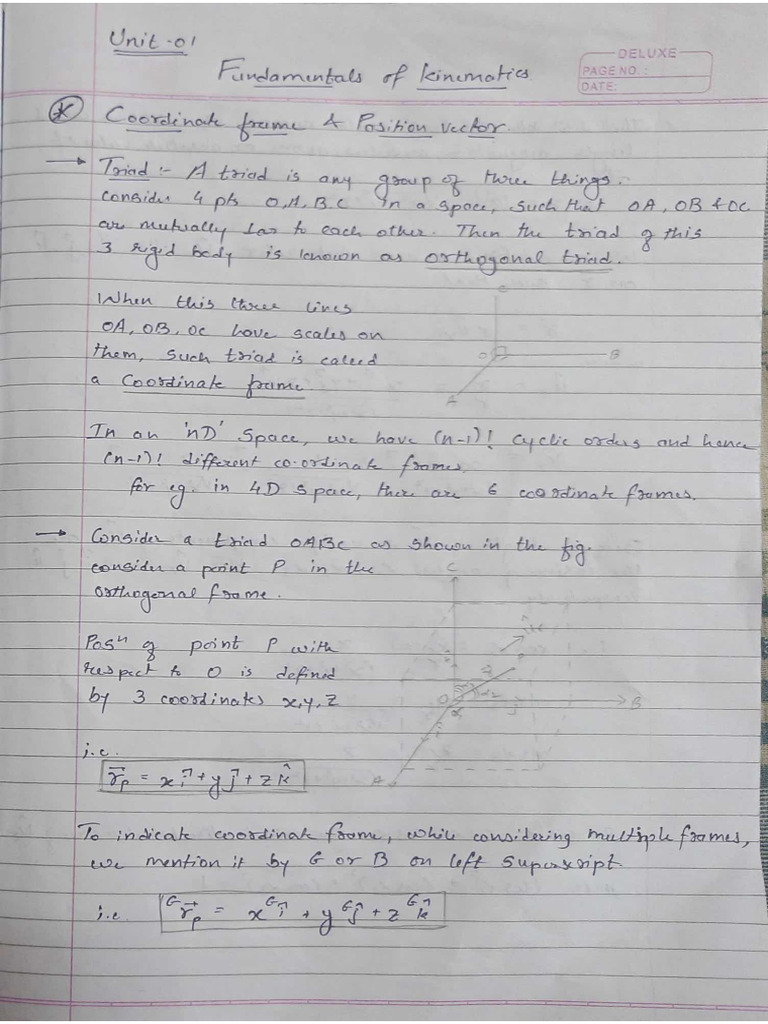 Unit-01
Fundamentals of kinematics
DELUXE
PAGE NO.:
DATE:
Coordinate frame & Position vector.
→ Triad :- A triad is any group of three things.
consider 4 pts O,A,B,C in a space, such that OA, OB & OC
are mutually ⊥ar to each other. Then the triad of this
3 rigid body is known as orthogonal triad.
When this three lines
OA, OB, OC have scales on
them, such triad is called
a Coordinate frame
C
O
B
A
In an 'nD' space, we have (n-1)! cyclic orders and hence
(n-1)! different co-ordinate frames.
for eg. in 4D space, there are 6 coordinate frames.
→ Consider a triad OABC as shown in the fig.
consider a point P in the
orthogonal frame.
C
Posn of point P with
respect to O is defined
by 3 coordinates x,y,z
O
B
A
i.e.
r⃗p = x î + y ĵ + z k̂
To indicate coordinate frame, while considering multiple frames,
we mention it by G or B on left superscript
i.e. ᴳr⃗p = x ᴳî + y ᴳĵ + z ᴳk̂